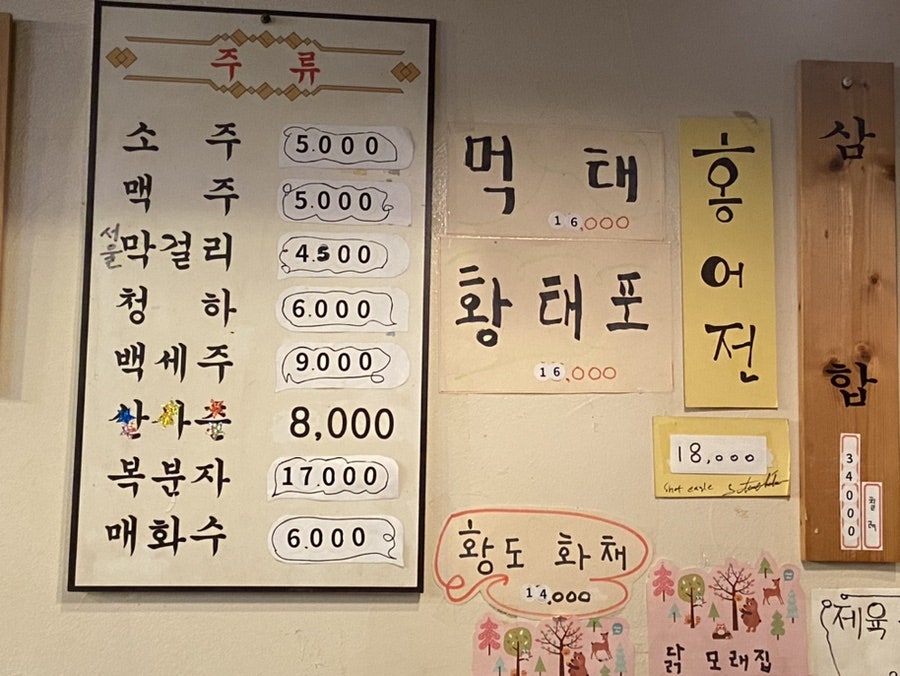 주 류
소 주 5.000
맥 주 5.000
서울 막걸리 4.500
청 하 6.000
백세주 9.000
산사춘 8,000
복분자 17.000
매화수 6.000
먹 태
16,000
황태포
16,000
홍어전
18,000
shot eagle
삼합
34000
칠레
황도 화채
14,000
닭 모래집
제육